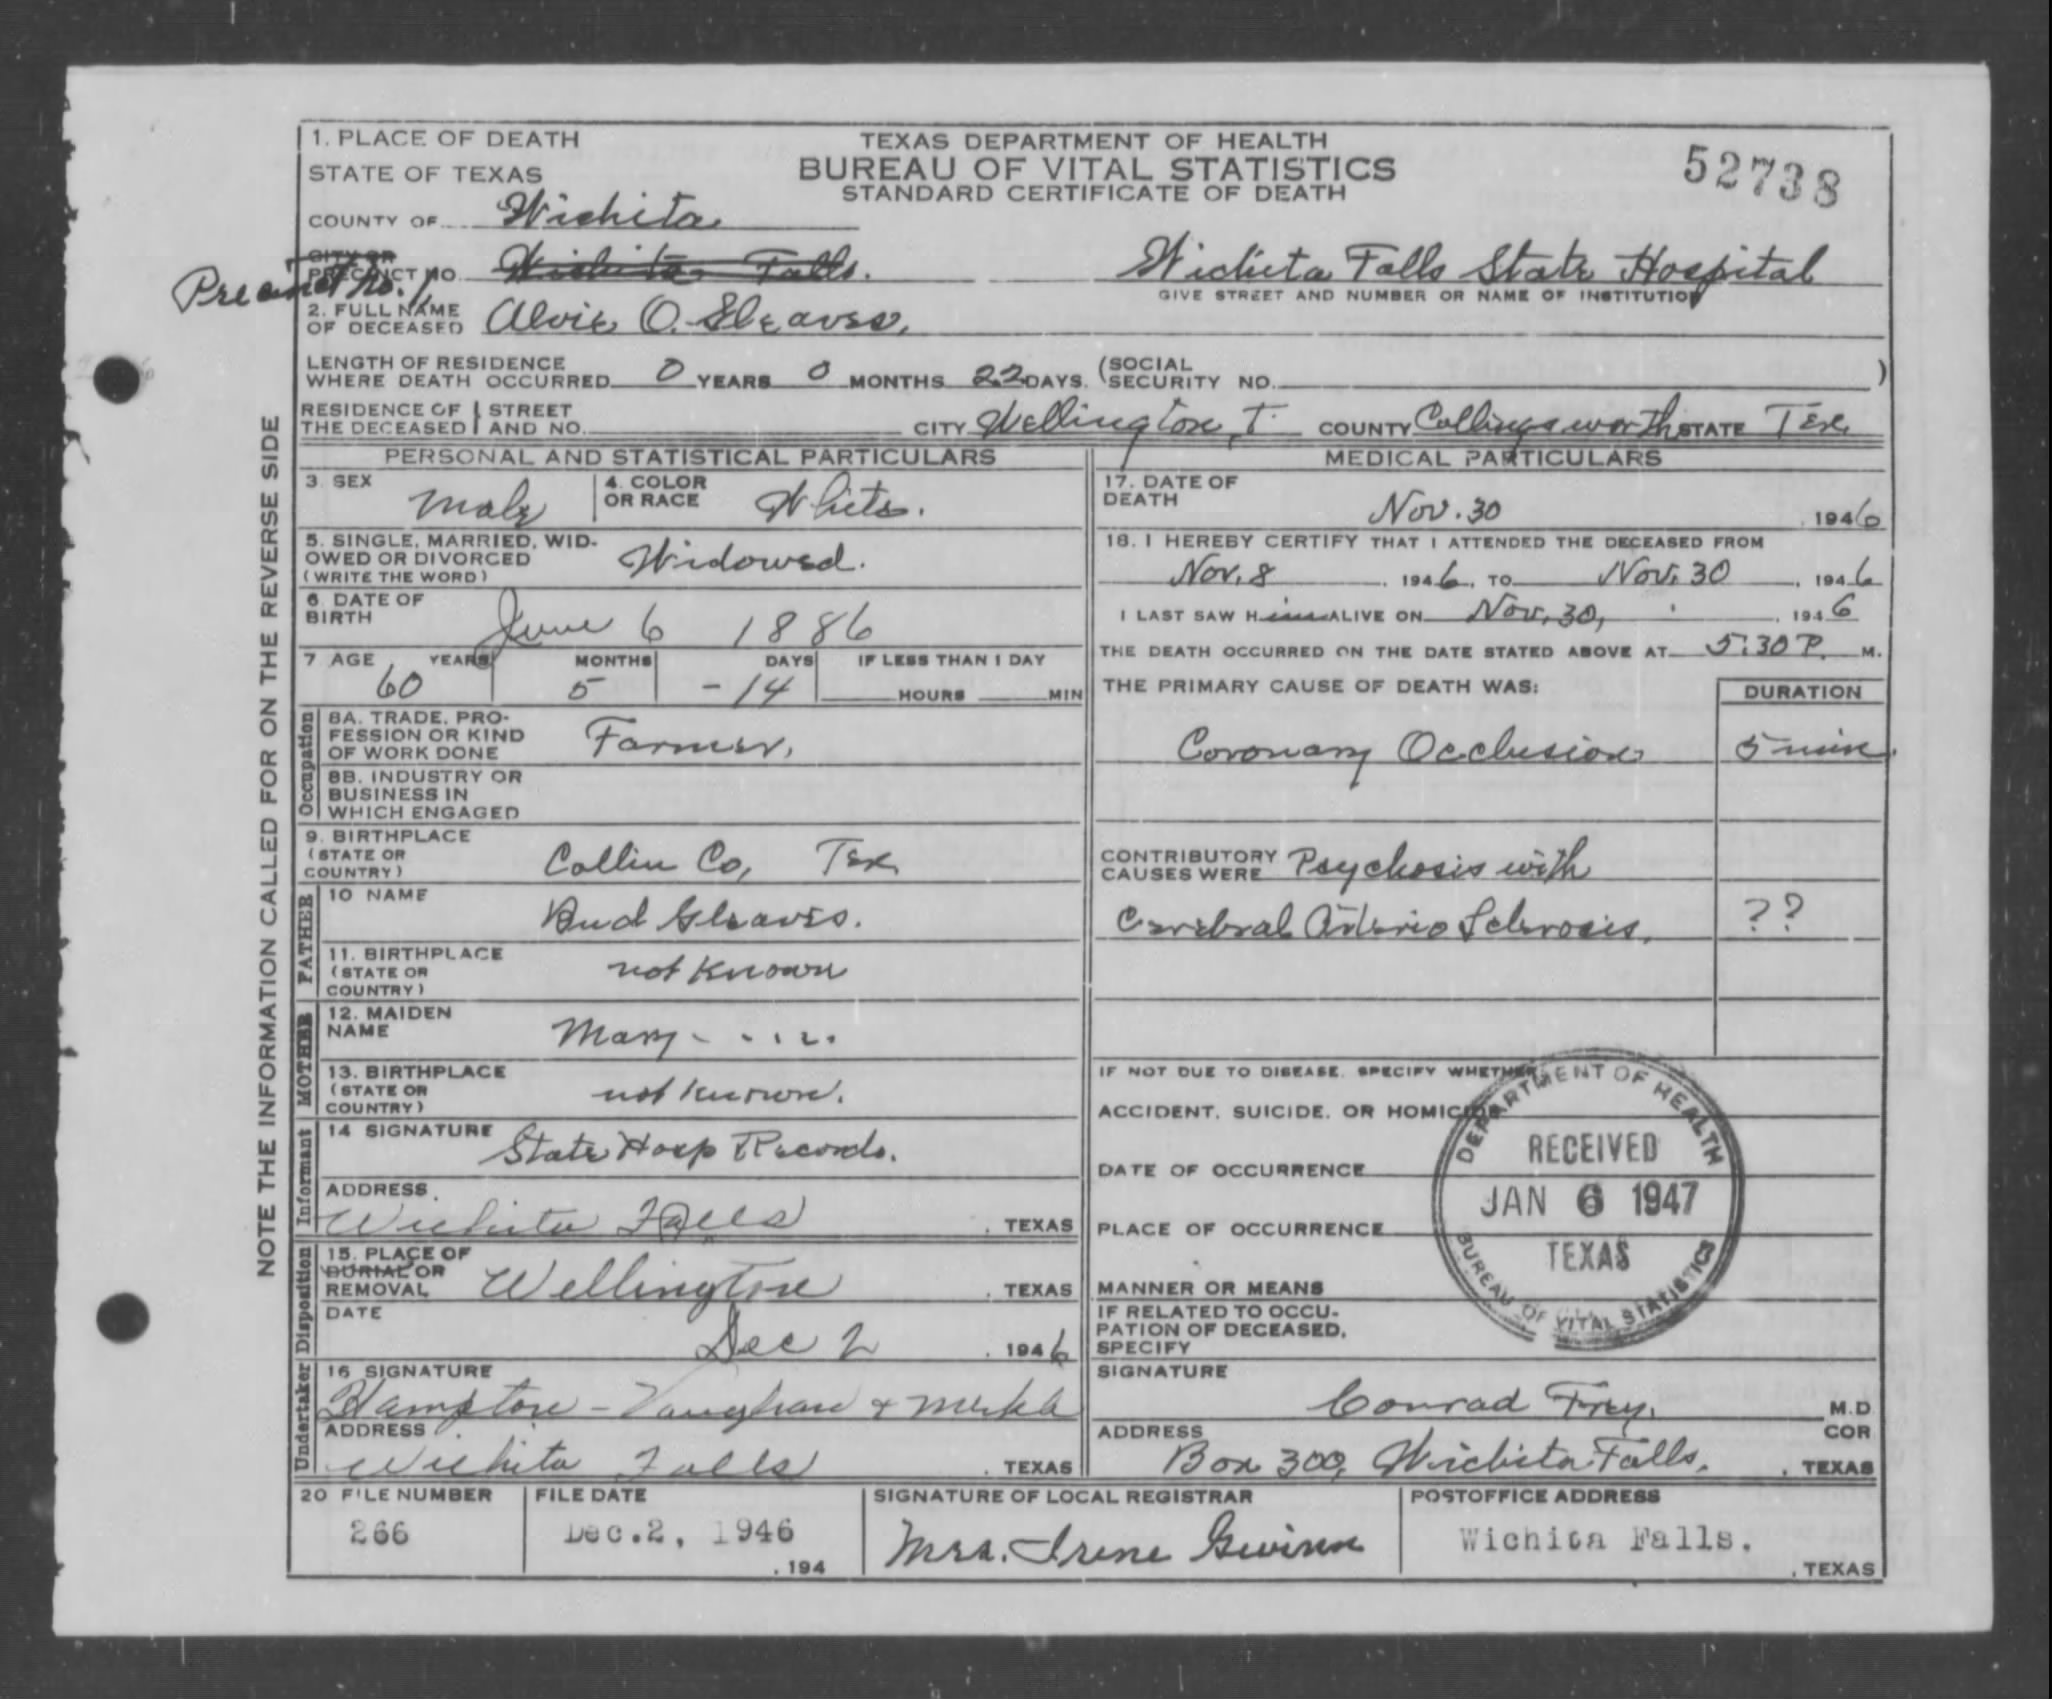 1. PLACE OF DEATH
TEXAS DEPARTMENT OF HEALTH
BUREAU OF VITAL STATISTICS
STANDARD CERTIFICATE OF DEATH
52738
STATE OF TEXAS
COUNTY OF Wichita
CITY OR
PRECINCT NO. Wichita Falls.
Precinct No. 1
Wichita Falls State Hospital
GIVE STREET AND NUMBER OR NAME OF INSTITUTION
2. FULL NAME
OF DECEASED Alvie O. Gleaves,
LENGTH OF RESIDENCE
WHERE DEATH OCCURRED 0 YEARS 0 MONTHS 22 DAYS. (SOCIAL
SECURITY NO. )
RESIDENCE OF THE DECEASED STREET AND NO. CITY Wellington, T. COUNTY Collingsworth STATE Tex.
PERSONAL AND STATISTICAL PARTICULARS
3. SEX Male 4. COLOR OR RACE White.
5. SINGLE, MARRIED, WID-
OWED OR DIVORCED Widowed.
(WRITE THE WORD)
6. DATE OF
BIRTH June 6 1886
7 AGE YEARS MONTHS DAYS IF LESS THAN 1 DAY
60 5 - 14 HOURS MIN
Occupation
8A. TRADE, PRO-
FESSION OR KIND
OF WORK DONE Farmer.
8B. INDUSTRY OR
BUSINESS IN
WHICH ENGAGED
9. BIRTHPLACE
(STATE OR
COUNTRY) Collin Co, Tex
FATHER
10 NAME Bud Gleaves.
11. BIRTHPLACE
(STATE OR
COUNTRY) not Known
MOTHER
12. MAIDEN
NAME Mary
13. BIRTHPLACE
(STATE OR
COUNTRY) not known.
Informant
14 SIGNATURE State Hosp Records.
ADDRESS.
Wichita Falls , TEXAS
Disposition
15. PLACE OF
BURIAL OR
REMOVAL Wellington , TEXAS
DATE
Dec 2 , 1946
Undertaker
16 SIGNATURE
Hampton - Vaughan &
ADDRESS
Wichita Falls , TEXAS
MEDICAL PARTICULARS
17. DATE OF
DEATH Nov. 30 , 1946
18. I HEREBY CERTIFY THAT I ATTENDED THE DECEASED FROM
Nov. 8 , 1946, TO Nov. 30 , 1946
I LAST SAW Him ALIVE ON Nov. 30, , 1946
THE DEATH OCCURRED ON THE DATE STATED ABOVE AT 5:30 P. M.
THE PRIMARY CAUSE OF DEATH WAS: DURATION
Coronary Occlusion 5 min.
CONTRIBUTORY
CAUSES WERE Psychosis with
Cerebral Arterio Sclerosis. ??
IF NOT DUE TO DISEASE, SPECIFY WHETHER
ACCIDENT, SUICIDE, OR HOMICIDE
DATE OF OCCURRENCE
PLACE OF OCCURRENCE
MANNER OR MEANS
IF RELATED TO OCCU-
PATION OF DECEASED,
SPECIFY
DEPARTMENT OF HEALTH
RECEIVED
JAN 6 1947
TEXAS
BUREAU OF VITAL STATISTICS
SIGNATURE
Conrad Frey. M.D
COR
ADDRESS
Box 300, Wichita Falls. , TEXAS
20 FILE NUMBER FILE DATE SIGNATURE OF LOCAL REGISTRAR POSTOFFICE ADDRESS
266 Dec.2, 1946 , 194 Mrs. Irene Gwinn Wichita Falls. , TEXAS
NOTE THE INFORMATION CALLED FOR ON THE REVERSE SIDE